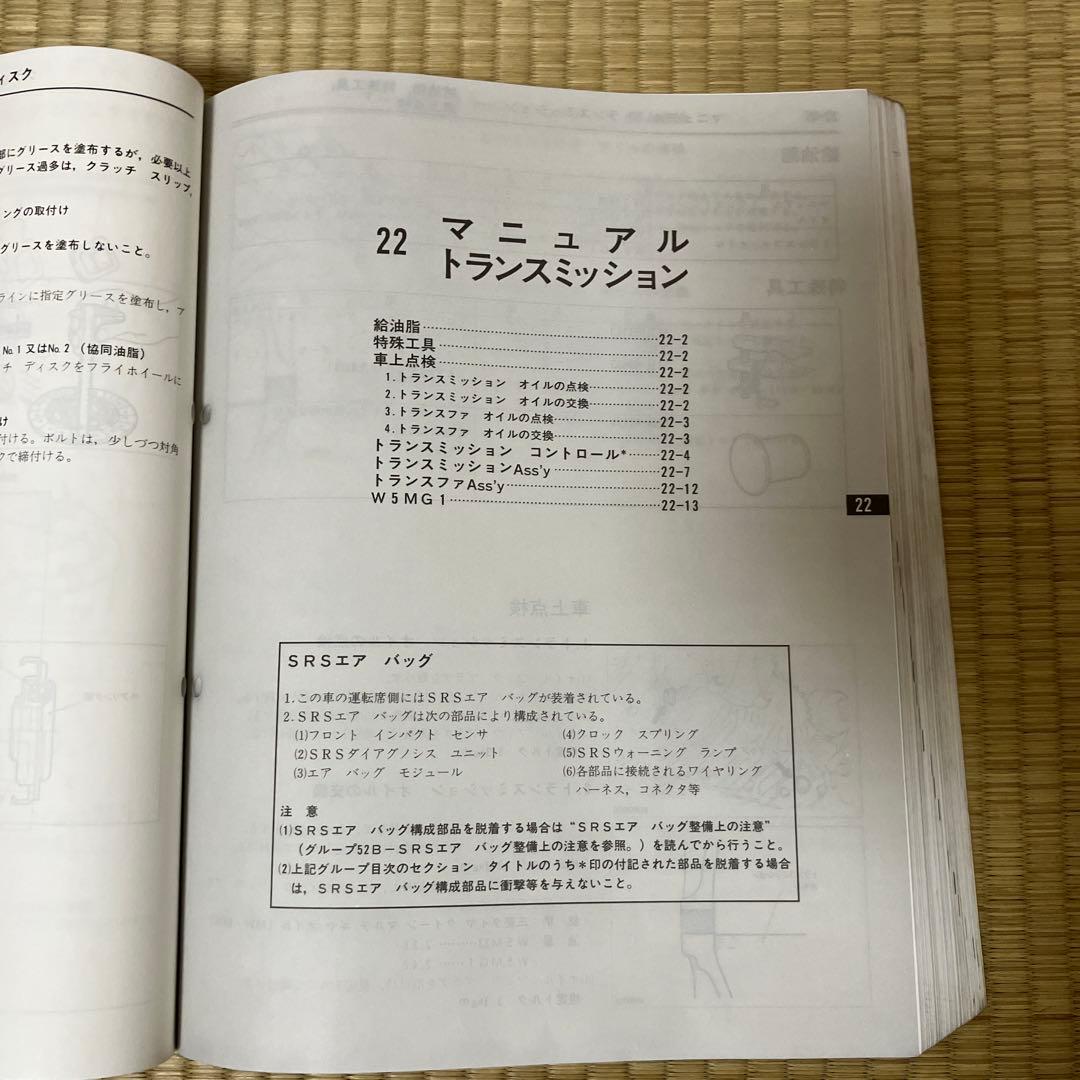 ィスク
部にグリースを塗布するが，必要以上
グリース過多は，クラッチ　スリップ，
ングの取付け
グリースを塗布しないこと。
ラインに指定グリースを塗布し，ア
№1又は№2（協同油脂）
チ　ディスクをフライホイールに
け
付ける。ボルトは，少しづつ対角
クで締付ける。
22　マニュアル
トランスミッション
給油脂……22-2
特殊工具……22-2
車上点検……22-2
1.トランスミッション　オイルの点検……22-2
2.トランスミッション　オイルの交換……22-2
3.トランスファ　オイルの点検……22-3
4.トランスファ　オイルの交換……22-3
トランスミッション　コントロール*……22-4
トランスミッションAss'y……22-7
トランスファAss'y……22-12
W5MG1……22-13
22
SRSエア　バッグ
1.この車の運転席側にはSRSエア　バッグが装着されている。
2.SRSエア　バッグは次の部品により構成されている。
(1)フロント　インパクト　センサ　(4)クロック　スプリング
(2)SRSダイアグノシス　ユニット　(5)SRSウォーニング　ランプ
(3)エア　バッグ　モジュール　(6)各部品に接続されるワイヤリング
ハーネス，コネクタ等
注　意
(1)SRSエア　バッグ構成部品を脱着する場合は“SRSエア　バッグ整備上の注意”
（グループ52B－SRSエア　バッグ整備上の注意を参照。）を読んでから行うこと。
(2)上記グループ目次のセクション　タイトルのうち*印の付記された部品を脱着する場合
は，SRSエア　バッグ構成部品に衝撃等を与えないこと。